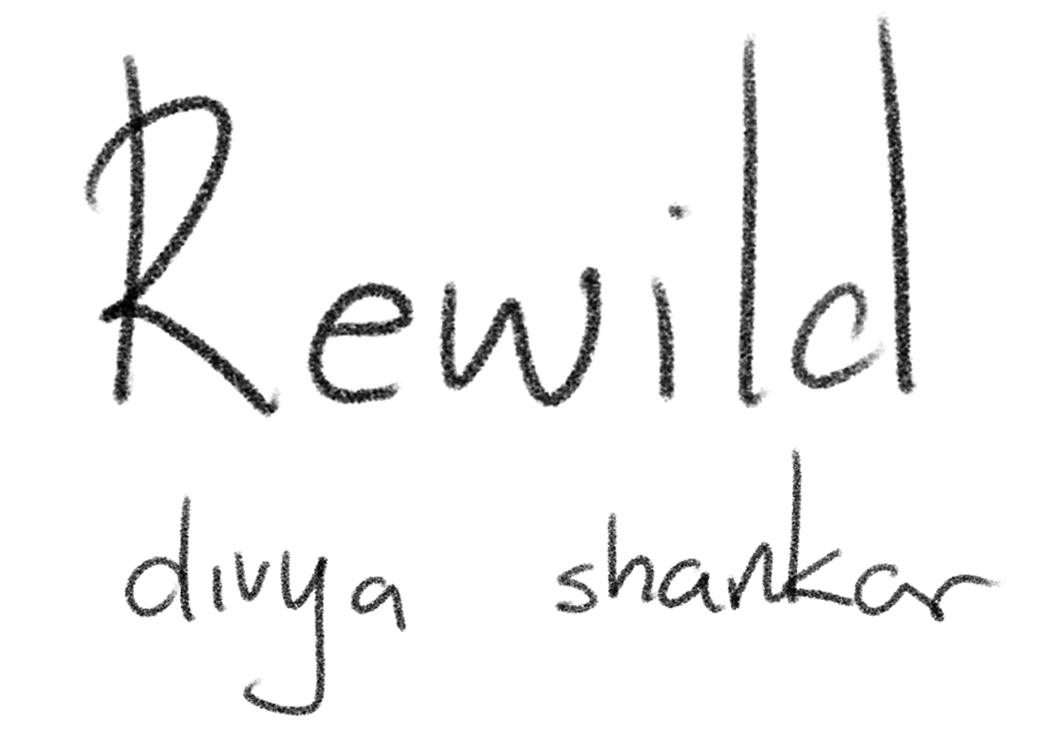 Rewild
divya shankar